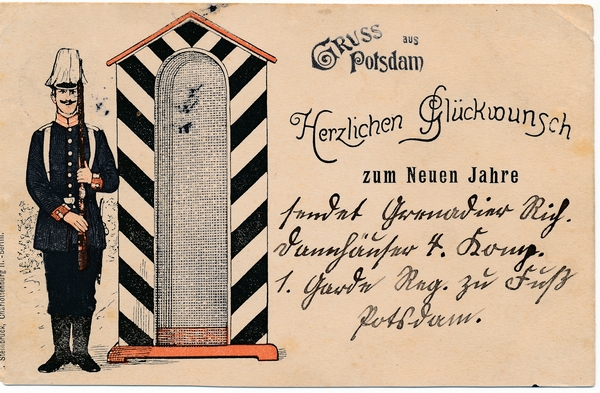 Gruss aus
Potsdam
Herzlichen Glückwunsch
zum Neuen Jahre
sendet Grenadier Rich.
Dannhäuser 4. Komp.
1. Garde Reg. zu Fuß
Potsdam.
Steinbrück, Charlottenburg II.-Berlin.